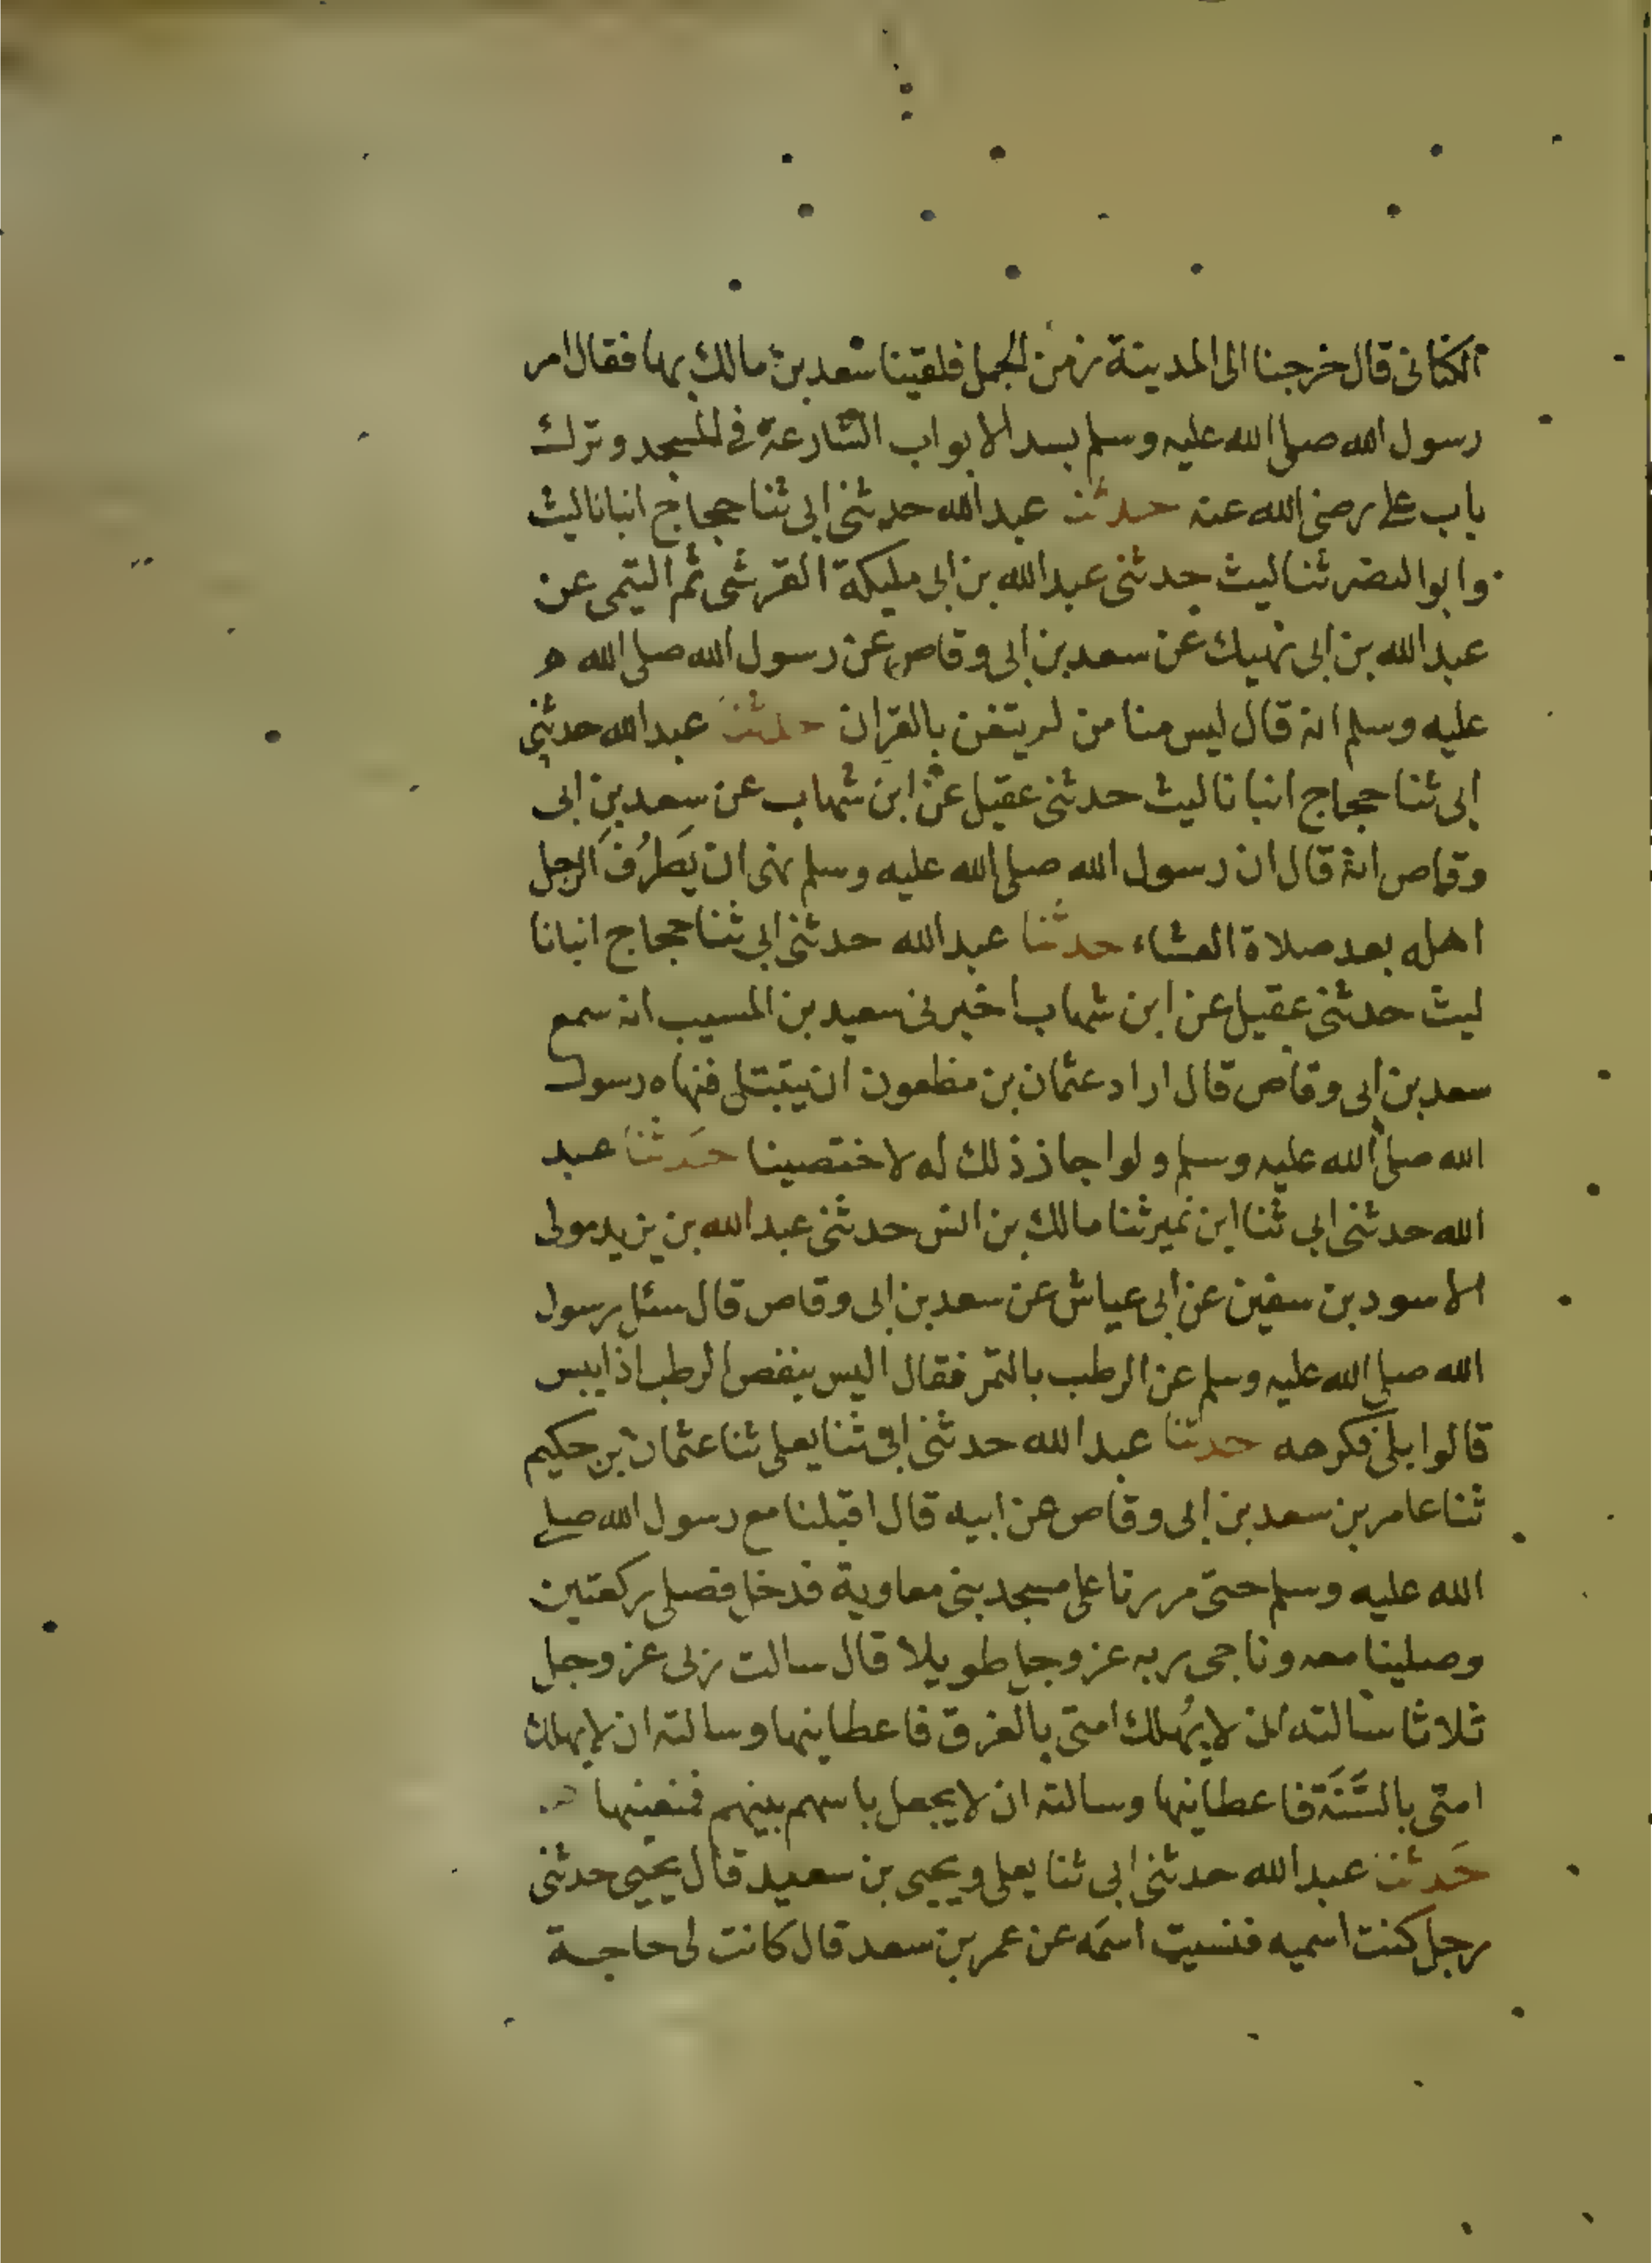 الكنانى قال خرجنا الى المدينة زمن الجمل فلقينا سعد بن مالك بها فقال امر
رسول الله صلى الله عليه وسلم بسد الابواب الشارعة في المسجد وترك
باب علي رضى الله عنه حدثنا عبد الله حدثنى ابى ثنا حجاج انبانا ليث
وابو النضر ثنا ليث حدثنى عبد الله بن ابى مليكة القرشى ثم التيمى عن
عبد الله بن ابى نهيك عن سعد بن ابى وقاص عن رسول الله صلى الله
عليه وسلم انه قال ليس منا من لم يتغن بالقران حدثنا عبد الله حدثنى
ابى ثنا حجاج انبانا ليث حدثنى عقيل عن ابن شهاب عن سعد بن ابى
وقاص انه قال ان رسول الله صلى الله عليه وسلم نهى ان يَطرُق الرجل
اهله بعد صلاة العشاء حدثنا عبد الله حدثنى ابى ثنا حجاج انبانا
ليث حدثنى عقيل عن ابن شهاب اخبرنى سعيد بن المسيب انه سمع
سعد بن ابى وقاص قال اراد عثمان بن مظعون ان يتبتل فنهاه رسول
الله صلى الله عليه وسلم ولو اجاز ذلك له لاختصينا حَدثنا عبد
الله حدثنى ابى ثنا ابن نمير ثنا مالك بن انس حدثنى عبد الله بن يزيد مولى
الاسود بن سفين عن ابى عياش عن سعد بن ابى وقاص قال سئل رسول
الله صلى الله عليه وسلم عن الرطب بالتمر فقال اليس ينقص الرطب اذا يبس
قالوا بلى فكرهه حدثنا عبد الله حدثنى ابى ثنا يعلى ثنا عثمان بن حكيم
ثنا عامر بن سعد بن ابى وقاص عن ابيه قال اقبلنا مع رسول الله صلى
الله عليه وسلم حتى مررنا على مسجد بنى معاوية فدخل فصلى ركعتين
وصلينا معه وناجى ربه عز وجل طويلا قال سالت ربى عز وجل
ثلاثا سالته ان لا يُهلك امتى بالغرق فاعطانيها وسالته ان لا يهلك
امتى بالسَّنَة فاعطانيها وسالته ان لا يجعل باسهم بينهم فمنعنيها
حَدثنا عبد الله حدثنى ابى ثنا يعلى ويحيى بن سعيد قال يحيى حدثنى
رجل كنت اسميه فنسيت اسمَه عن عمر بن سعد قال كانت لى حاجة